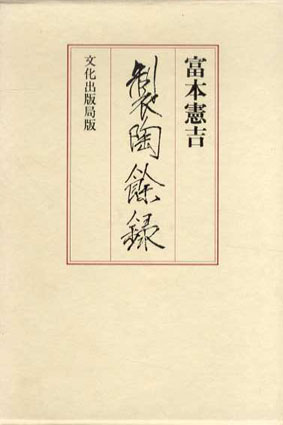 富本憲吉
製陶餘録
文化出版局版